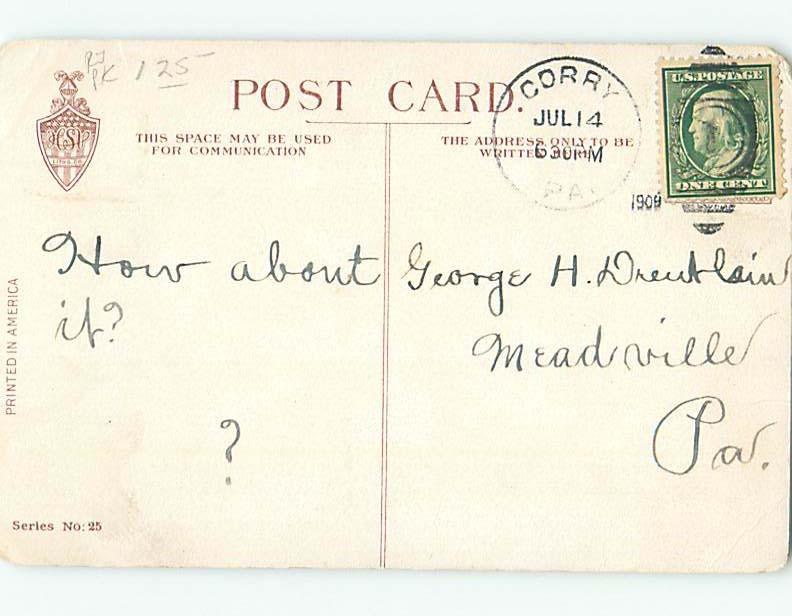 PK 1 25
POST CARD.
THIS SPACE MAY BE USED
FOR COMMUNICATION
THE ADDRESS ONLY TO BE
WRITTEN HERE
CORRY
JUL 14
630 PM
PA.
1909
U.S. POSTAGE
ONE CENT
HSV
LITHO. CO.
How about
it?
?
George H. Dreutlein
Meadville
Pa.
PRINTED IN AMERICA
Series No: 25